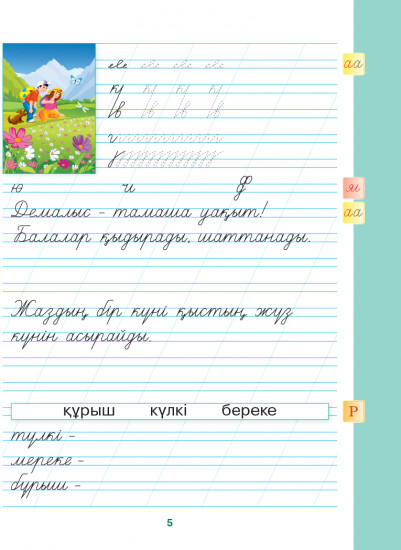 аа
ю и Ф
я
Демалыс – тамаша уақыт!
аа
Балалар қыдырады, шаттанады.
Жаздың бір күні қыстың жүз
күнін асырайды.
құрыш күлкі береке
Р
түлкі –
мереке –
бұрыш –
5